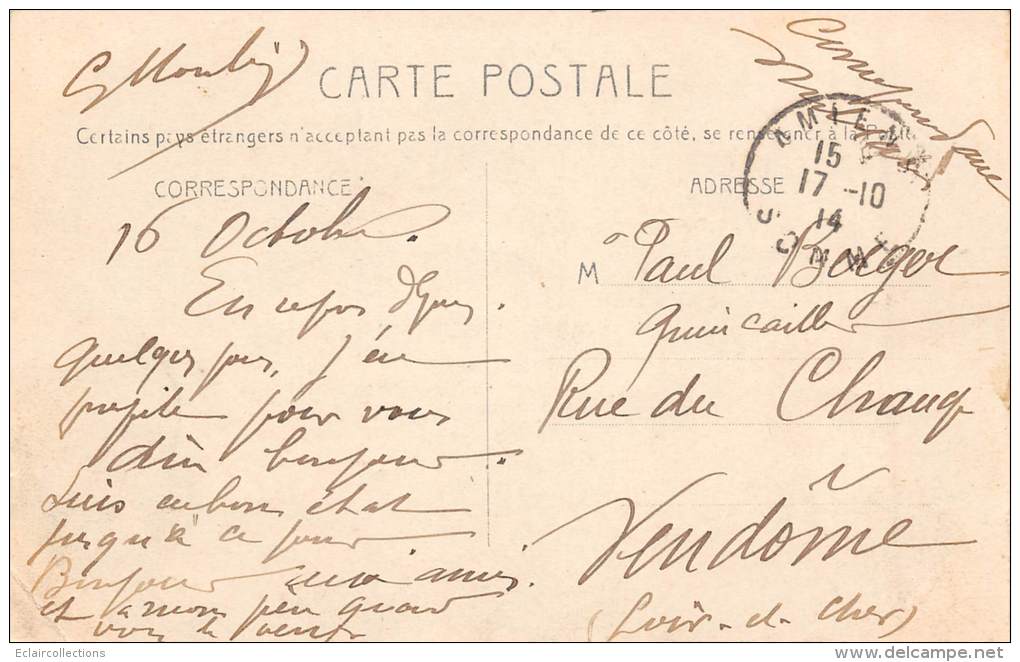 G Moulin
Correspondance
militaire
CARTE POSTALE
Certains pays étrangers n'acceptant pas la correspondance de ce côté, se renseigner à la Poste
CORRESPONDANCE
ADRESSE
AMIENS
15
17 -10
14
SOMME
16 Octobre.
En repos depuis
quelques jours, j'en
profite pour vous
dire bonjour.
Suis en bon état
jusqu'à ce jour
Bonjour aux amis.
et à mon père quand
vous le verrez
M Paul Berger
Quincaillier
Rue du Change
Vendôme
(Loir-et-Cher)
Eclaircollections
www.delcampe.net